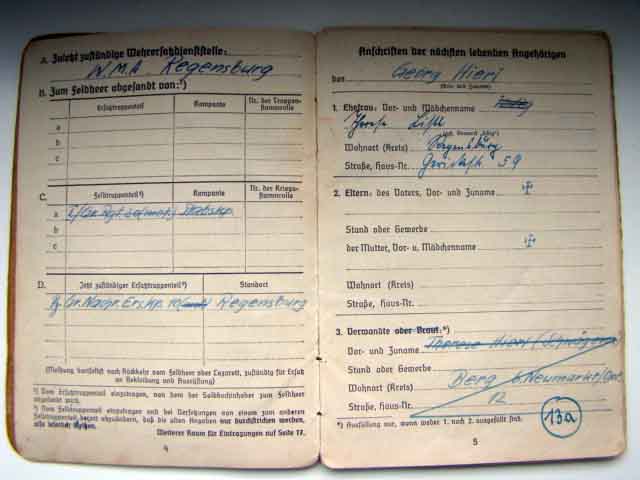 A. Zuletzt zuständige Wehrersatzdienststelle:
W.M.A. Regensburg
B. Zum Feldheer abgesandt von:¹)
Ersatztruppenteil Kompanie Nr. der Truppenstammrolle
a
b
c
C.
Feldtruppenteil²) Kompanie Nr. der Kriegsstammrolle
a Stabskp.
b
c
D.
Jetzt zuständiger Ersatztruppenteil²) Standort
Gr. Nachr. Ers. Kp. 10 Regensburg
(Meldung dortselbst nach Rückkehr vom Feldheer oder Lazarett, zuständig für Ersatz
an Bekleidung und Ausrüstung)
¹) Vom Ersatztruppenteil einzutragen, von dem der Soldbuchinhaber zum Feldheer
abgesandt wird.
²) Vom Feldtruppenteil einzutragen und bei Versetzungen von einem zum anderen
Feldtruppenteil derart abzuändern, daß die alten Angaben nur durchstrichen werden,
also leserlich bleiben.
Weiterer Raum für Eintragungen auf Seite 17.
4
Anschriften der nächsten lebenden Angehörigen
des Georg Hierl
(Vor- und Zuname)
1. Ehefrau: Vor- und Mädchenname
Wohnort (Kreis) Regensburg
Straße, Haus-Nr. 59
2. Eltern: des Vaters, Vor- und Zuname
Stand oder Gewerbe
der Mutter, Vor- u. Mädchenname
Wohnort (Kreis)
Straße, Haus-Nr.
3. Verwandte oder Braut:*)
Vor- und Zuname Therese Hierl (Schwägerin)
Stand oder Gewerbe
Wohnort (Kreis) Berg b. Neumarkt/Opf.
Straße, Haus-Nr. 12
*) Ausfüllung nur, wenn weder 1. noch 2. ausgefüllt sind.
13a
5